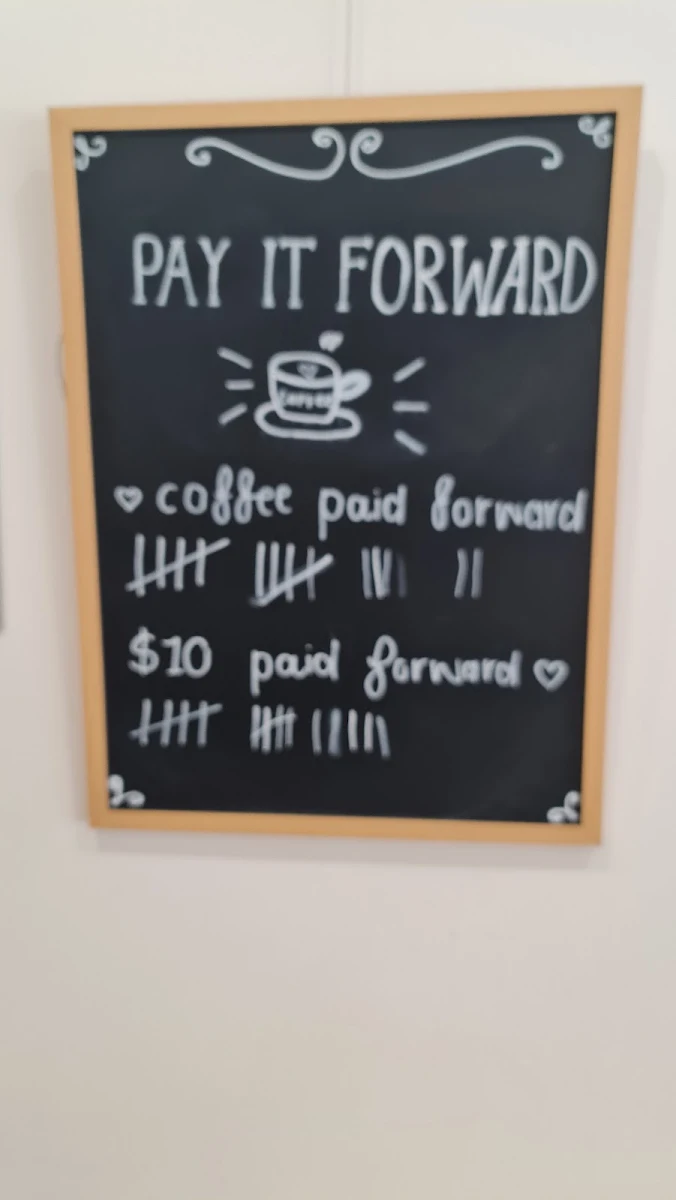 PAY IT FORWARD
COFFEE
coffee paid forward
$10 paid forward